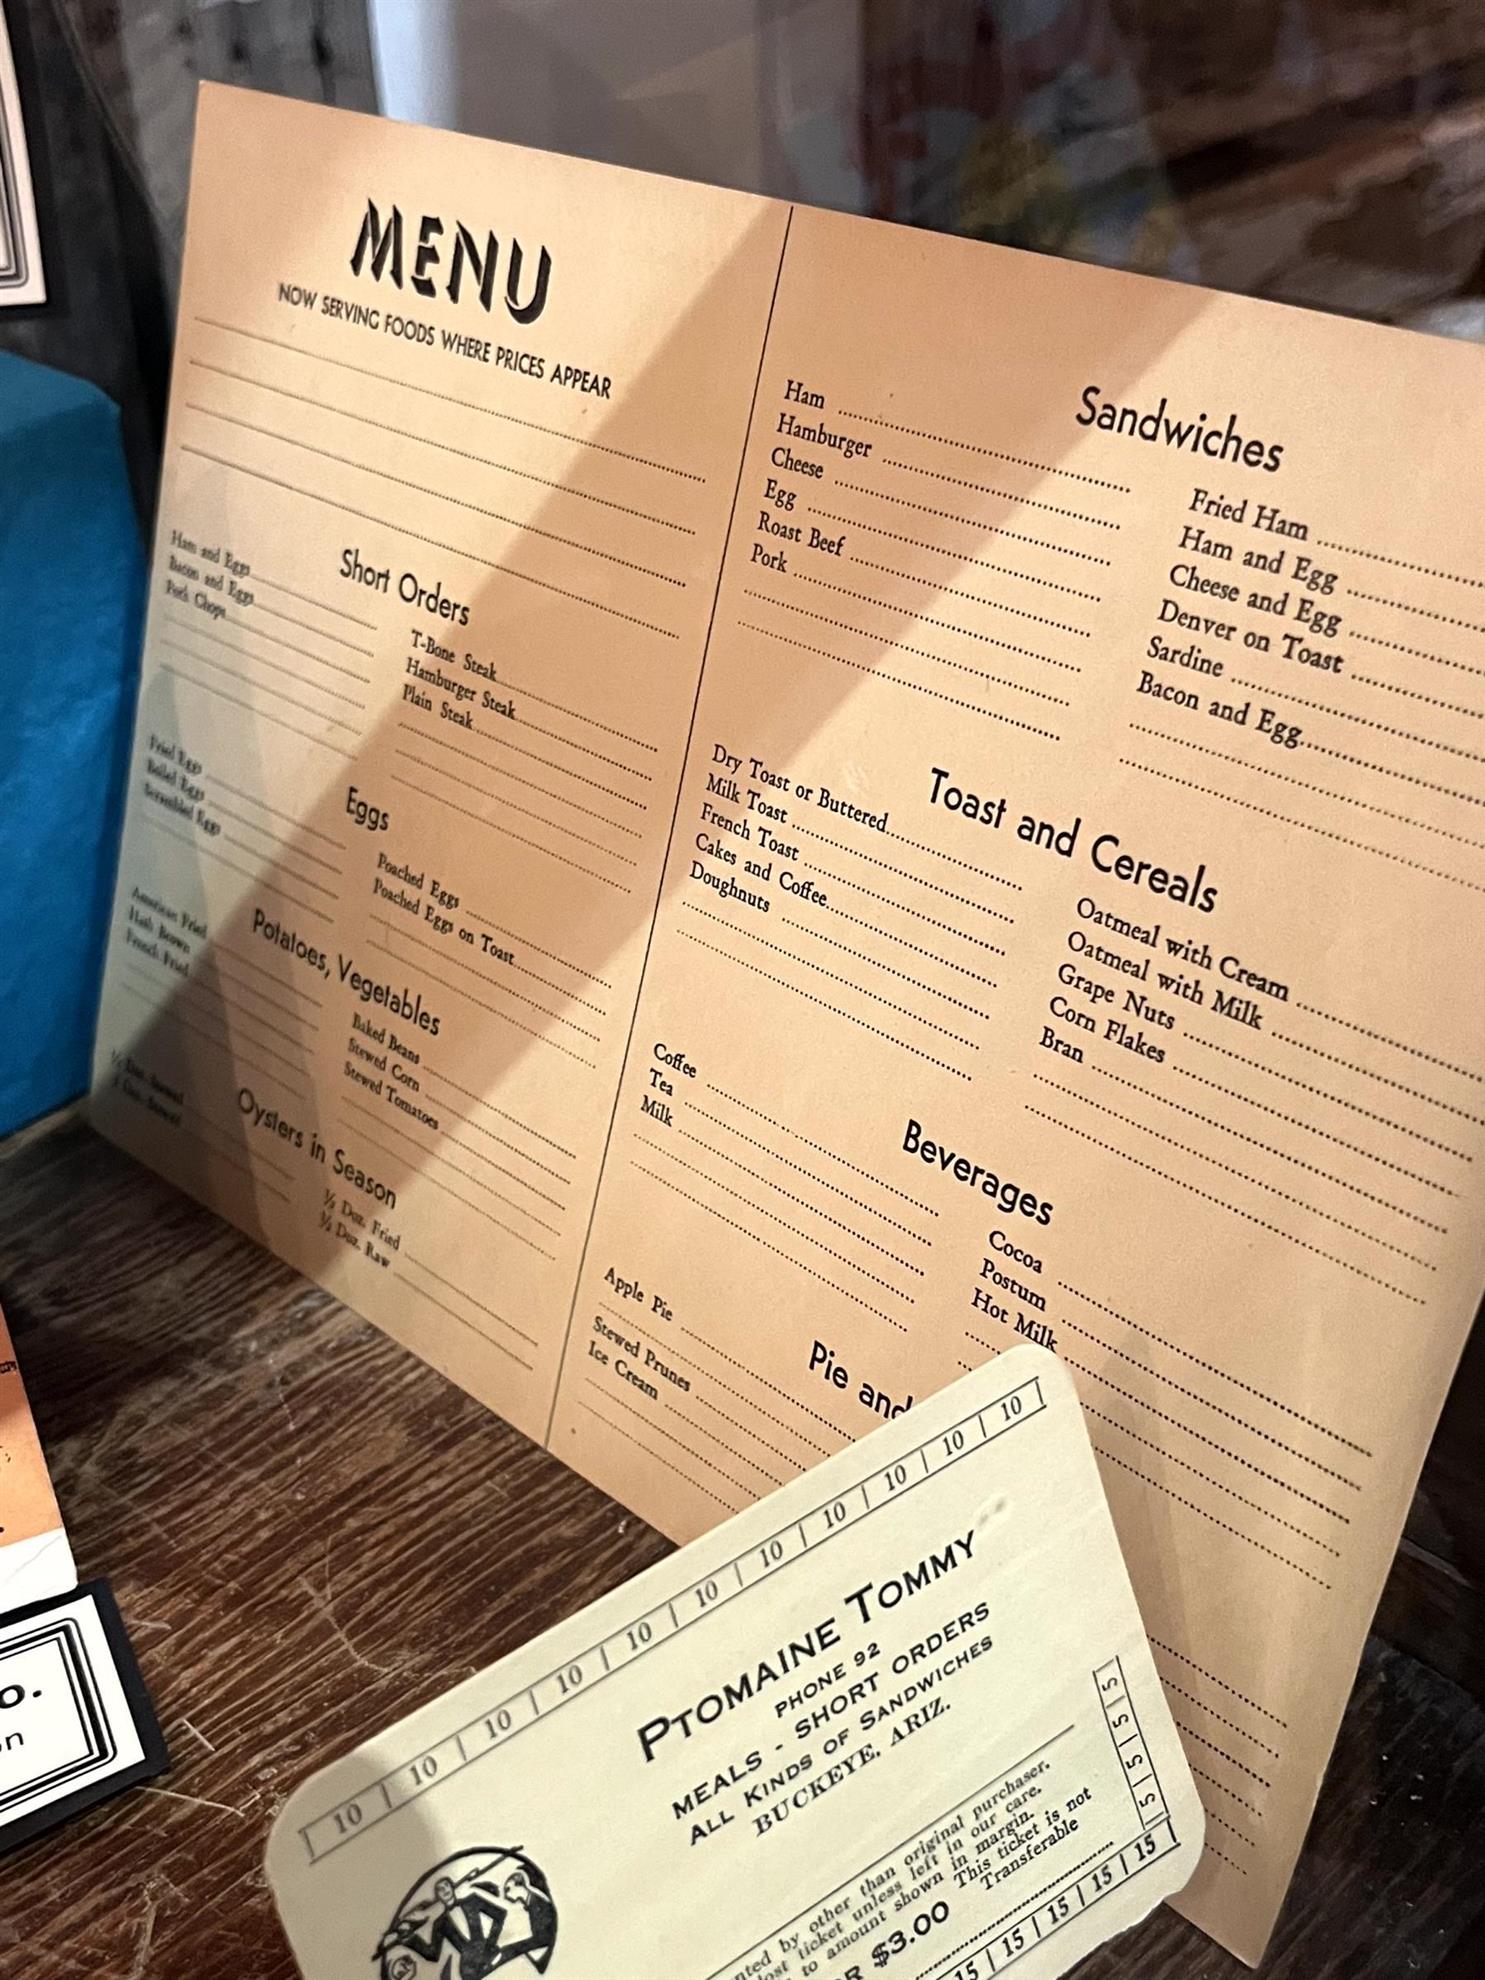 MENU
NOW SERVING FOODS WHERE PRICES APPEAR
Short Orders
Ham and Eggs
Bacon and Eggs
Pork Chops
T-Bone Steak
Hamburger Steak
Plain Steak
Eggs
Fried Eggs
Boiled Eggs
Scrambled Eggs
Poached Eggs
Poached Eggs on Toast
Potatoes, Vegetables
American Fried
Hash Brown
French Fried
Baked Beans
Stewed Corn
Stewed Tomatoes
Oysters in Season
½ Doz. Stewed
1 Doz. Stewed
½ Doz. Fried
½ Doz. Raw
Sandwiches
Ham
Hamburger
Cheese
Egg
Roast Beef
Pork
Fried Ham
Ham and Egg
Cheese and Egg
Denver on Toast
Sardine
Bacon and Egg
Toast and Cereals
Dry Toast or Buttered
Milk Toast
French Toast
Cakes and Coffee
Doughnuts
Oatmeal with Cream
Oatmeal with Milk
Grape Nuts
Corn Flakes
Bran
Beverages
Coffee
Tea
Milk
Cocoa
Postum
Hot Milk
Pie and
Apple Pie
Stewed Prunes
Ice Cream
10 | 10 | 10 | 10 | 10 | 10 | 10 | 10 | 10 | 10 | 10
PTOMAINE TOMMY
PHONE 92
MEALS - SHORT ORDERS
ALL KINDS OF SANDWICHES
BUCKEYE, ARIZ.
by other than original purchaser.
lost ticket unless left in our care.
to amount shown in margin.
This ticket is not
Transferable
$3.00
5 | 5 | 5 | 5
15 | 15 | 15 | 15 | 15
o.
on